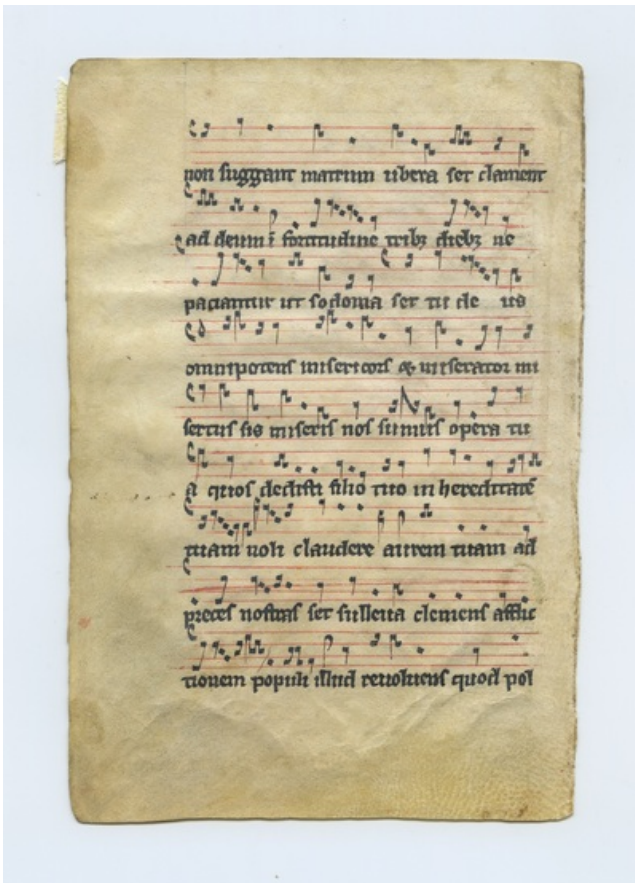 non suggant matrum ubera set clament
ad deum ī fortitudine tribꝫ diebꝫ ne
paciantur ut sodoma set tu de us
omnipotens misericors & miserator mi
sertus sis miseris nos sumus opera tu
a quos dedisti filio tuo in hereditatē
tuam noli claudere aurem tuam ad
preces nostras set sulleua clemens afflic
tionem populi illud reuoluens quod pol